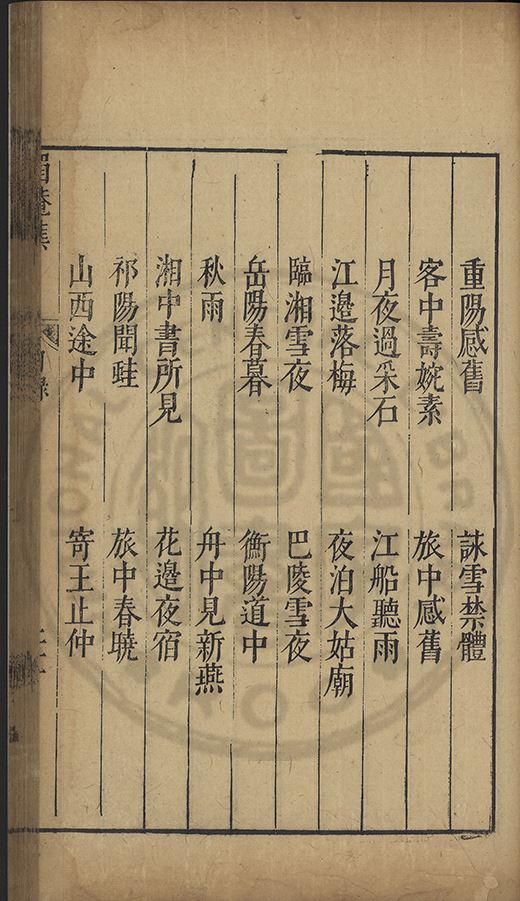 重陽感舊　詠雪禁體
客中壽婉素　旅中感舊
月夜過采石　江船聽雨
江邉落梅　夜泊大姑廟
臨湘雪夜　巴陵雪夜
岳陽春暮　衡陽道中
秋雨　舟中見新燕
湘中書所見　花邉夜宿
祁陽聞蛙　旅中春曉
山西途中　寄王止仲
眉菴集　目錄